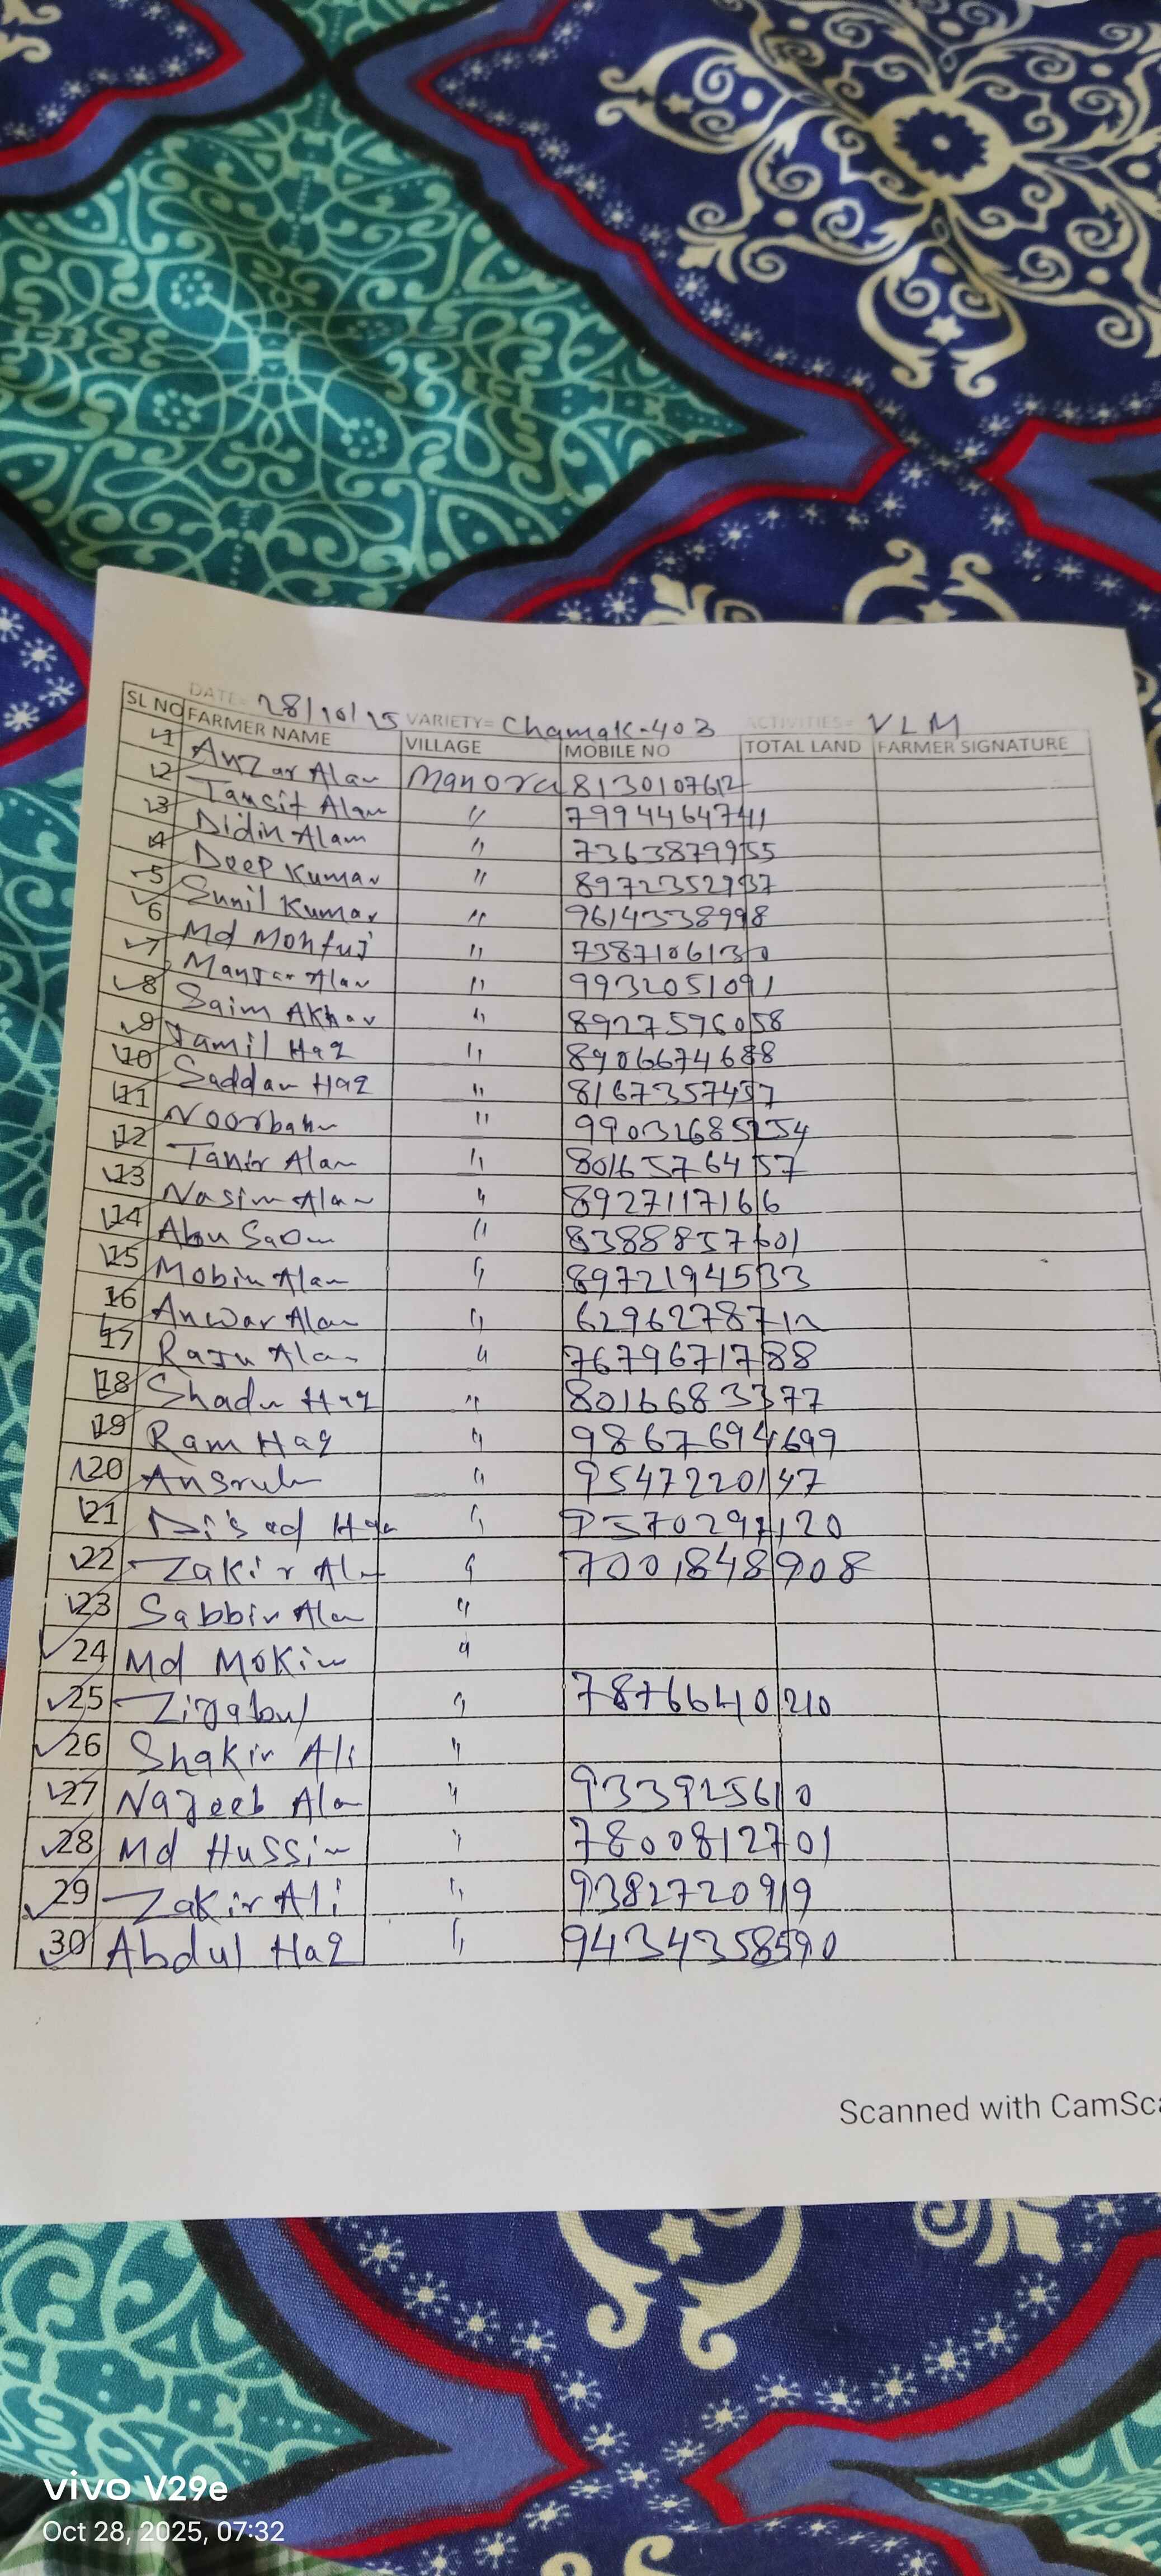 DATE= 28/10/25 VARIETY= Chamak-403 ACTIVITIES= VLM
SL NO FARMER NAME VILLAGE MOBILE NO TOTAL LAND FARMER SIGNATURE
1 Anzar Alam Manora 8130107612
2 Tansit Alam " 7994464741
3 Didin Alam " 7363879955
4 Deep Kumar " 8972352937
5 Sunil Kumar " 9614338998
6 Md Monfuj " 7387106130
7 Manjar Alam " 9932051091
8 Saim Akhar " 8927596058
9 Jamil Haq " 8906674688
10 Saddam Haq " 8167357437
11 Noorbanu " 99032685254
12 Tanbr Alam " 8016576457
13 Nasim Alam " 8927117166
14 Abu " 8388857601
15 Mobin Alam " 8972194533
16 Anwar Alam " 6296278712
17 Raju Alam " 7679671788
18 Shadu Haq " 8016683377
19 Ram Haq " 9867694699
20 Ansrul " 9547220147
21 " 9570291120
22 Zakir Al " 7001848908
23 Sabbir Ala "
24 Md Mokim "
25 Zijabul " 7876640210
26 Shakir Ali "
27 Najeeb Ala " 933925610
28 Md Hussin " 7800812701
29 Zakir Ali " 9382720919
30 Abdul Haq " 9434358590
Scanned with CamSca
vivo V29e
Oct 28, 2025, 07:32